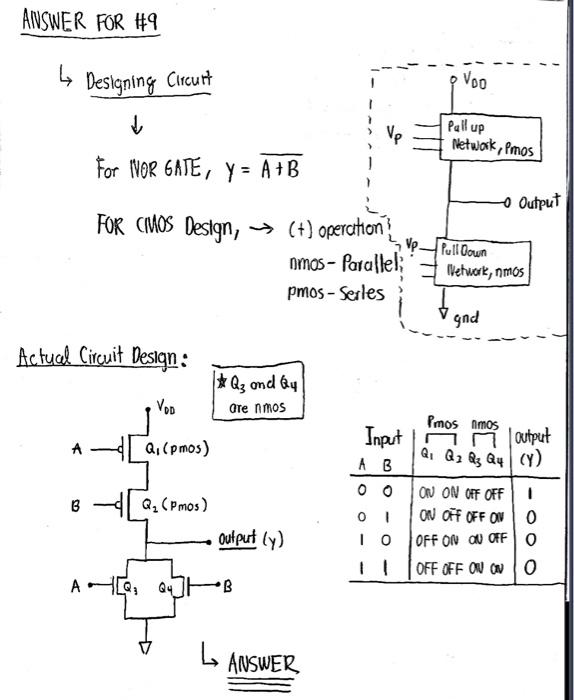 ANSWER FOR #9
↳ Designing Circuit
↓
For NOR GATE, y = \overline{A+B}
FOR CMOS Design, → (+) operation
nmos - Parallel
pmos - Series
VDD
Vp
Pull up
Network, Pmos
Output
Vp
Pull Down
Network, nmos
gnd
Actual Circuit Design:
★ Q3 and Q4
are nmos
VDD
A
Q1 (pmos)
B
Q2 (pmos)
output (y)
A
Q3
Q4
B
↳ ANSWER
Pmos nmos
Input output
A B Q1 Q2 Q3 Q4 (Y)
0 0 ON ON OFF OFF 1
0 1 ON OFF OFF ON 0
1 0 OFF ON ON OFF 0
1 1 OFF OFF ON ON 0